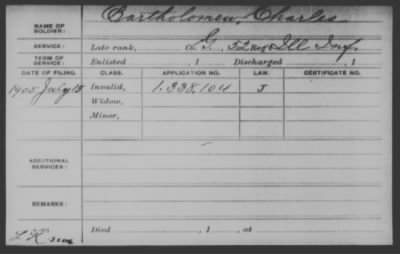 NAME OF SOLDIER: Bartholomew, Charles
SERVICE: Late rank, G, 52 Reg't Ill Inf.
TERM OF SERVICE: Enlisted , 1 Discharged , 1
DATE OF FILING. CLASS. APPLICATION NO. LAW. CERTIFICATE NO.
1905 July 15 Invalid, 1.338.104 J
Widow,
Minor,
ADDITIONAL SERVICES:
REMARKS:
Died , 1 , at